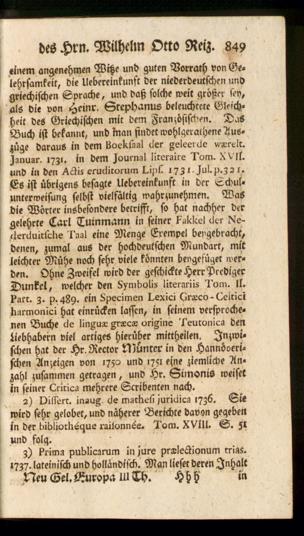 des Hrn. Wilhelm Otto Reiz. 849
einem angenehmen Witze und guten Vorrath von Ge-
lehrsamkeit, die Uebereinkunft der niederdeutschen und
griechischen Sprache, und daß solche weit größer sey,
als die von Heinr. Stephanus beleuchtete Gleich-
heit des Griechischen mit dem Französischen. Das
Buch ist bekannt, und man findet wohlgerathene Aus-
züge daraus in dem Boeksaal der geleerde wærelt.
Januar. 1731. in dem Journal literaire Tom. XVII.
und in den Actis eruditorum Lips. 1731. Jul. p. 321.
Es ist übrigens besagte Uebereinkunft in der Schul-
unterweisung selbst vielfältig wahrzunehmen. Was
die Wörter insbesondere betrifft, so hat nachher der
gelehrte Carl Tuinmann in seiner Fakkel der Ne-
derduitsche Taal eine Menge Exempel beygebracht,
denen, zumal aus der hochdeutschen Mundart, mit
leichter Mühe noch sehr viele könnten beygefüget wer-
den. Ohne Zweifel wird der geschickte Herr Prediger
Dunkel, welcher den Symbolis literariis Tom. II.
Part. 3. p. 489. ein Specimen Lexici Græco-Celtici
harmonici hat einrücken lassen, in seinem versproche-
nen Buche de linguæ græcæ origine Teutonica den
Liebhabern viel artiges hierüber mittheilen. Inzwi-
schen hat der Hr. Rector Münter in den Hannöveri-
schen Anzeigen von 1750 und 1751 eine ziemliche An-
zahl zusammen getragen, und Hr. Simonis weiset
in seiner Critica mehrere Scribenten nach.
2) Dissert. inaug. de mathesi juridica 1736. Sie
wird sehr gelobet, und näherer Berichte davon gegeben
in der bibliothéque raisonnée. Tom. XVIII. S. 51
und folg.
3) Prima publicarum in jure prælectionum trias.
1737. lateinisch und holländisch. Man lieset deren Inhalt
Neu Gel. Europa III Th. Hhh in